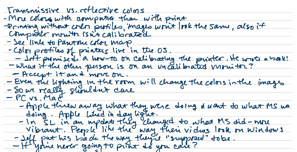 Transmissive vs. reflective colors
- More colors with computer than with print
- Printing without color profiles, images won't look the same, also if
computer monitor isn't calibrated.
- See link to Pantone color map
- Color profiles of printers live in the OS.
- Jeff promised a how-to on calibrating the printer. He wrote a book!
- What if the other person is on an uncalibrated monitor?
- Accept it and move on.
- Even the lighting in the room will change the colors in the image,
- So we really shouldn't care
- PC vs. Mac
- Apple threw away what they were doing & went to what MS was
doing. Apple liked in day light.
- In SL in an update they changed to what MS did - more
vibrant. People like the way their videos look on Windows
- Jeff put his back the way it's "supposed" to be.
- If you're never going to print do you care?